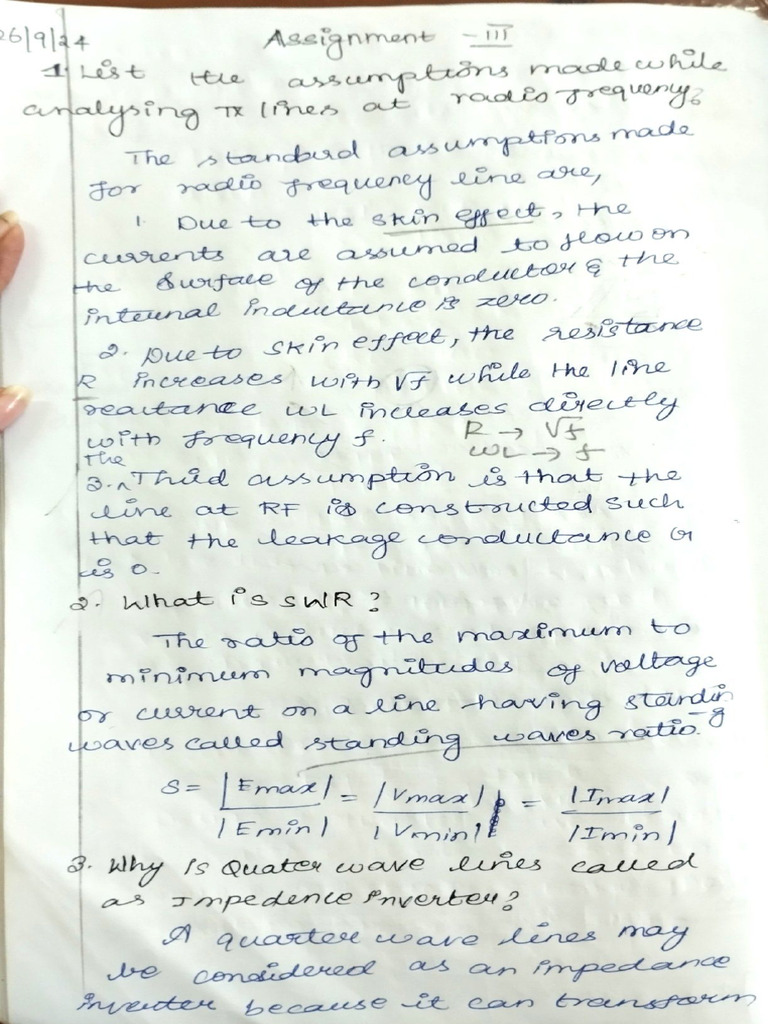 26/9/24 Assignment - III
1. List the assumptions made while
analysing TX lines at radio frequency?
The standard assumptions made
for radio frequency line are,
1. Due to the skin effect, the
currents are assumed to flow on
the surface of the conductor & the
internal inductance is zero.
2. Due to skin effect, the resistance
R increases with √f while the line
reactance ωL increases directly
with frequency f. R → √f
ωL → f
The
3. Third assumption is that the
line at RF is constructed such
that the leakage conductance G
is 0.
2. What is SWR?
The ratio of the maximum to
minimum magnitudes of voltage
or current on a line having standin
-g
waves called standing waves ratio.
S = |Emax| / |Emin| = |Vmax| / |Vmin| = |Imax| / |Imin|
3. Why is Quater wave lines called
as Impedence inverter?
A quarter wave lines may
be considered as an impedance
inverter because it can transform